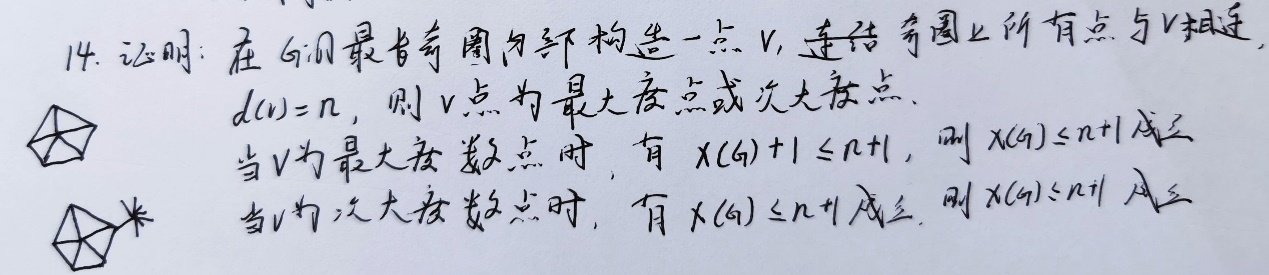 14. 证明: 在G的最长奇圈内部构造一点V, 连结奇圈上所有点与V相连,
d(v)=n, 则v点为最大度点或次大度点.
当V为最大度数点时, 有 χ(G)+1≤n+1, 则χ(G)≤n+1成立
当v为次大度数点时, 有 χ(G)≤n+1成立. 则χ(G)≤n+1成立